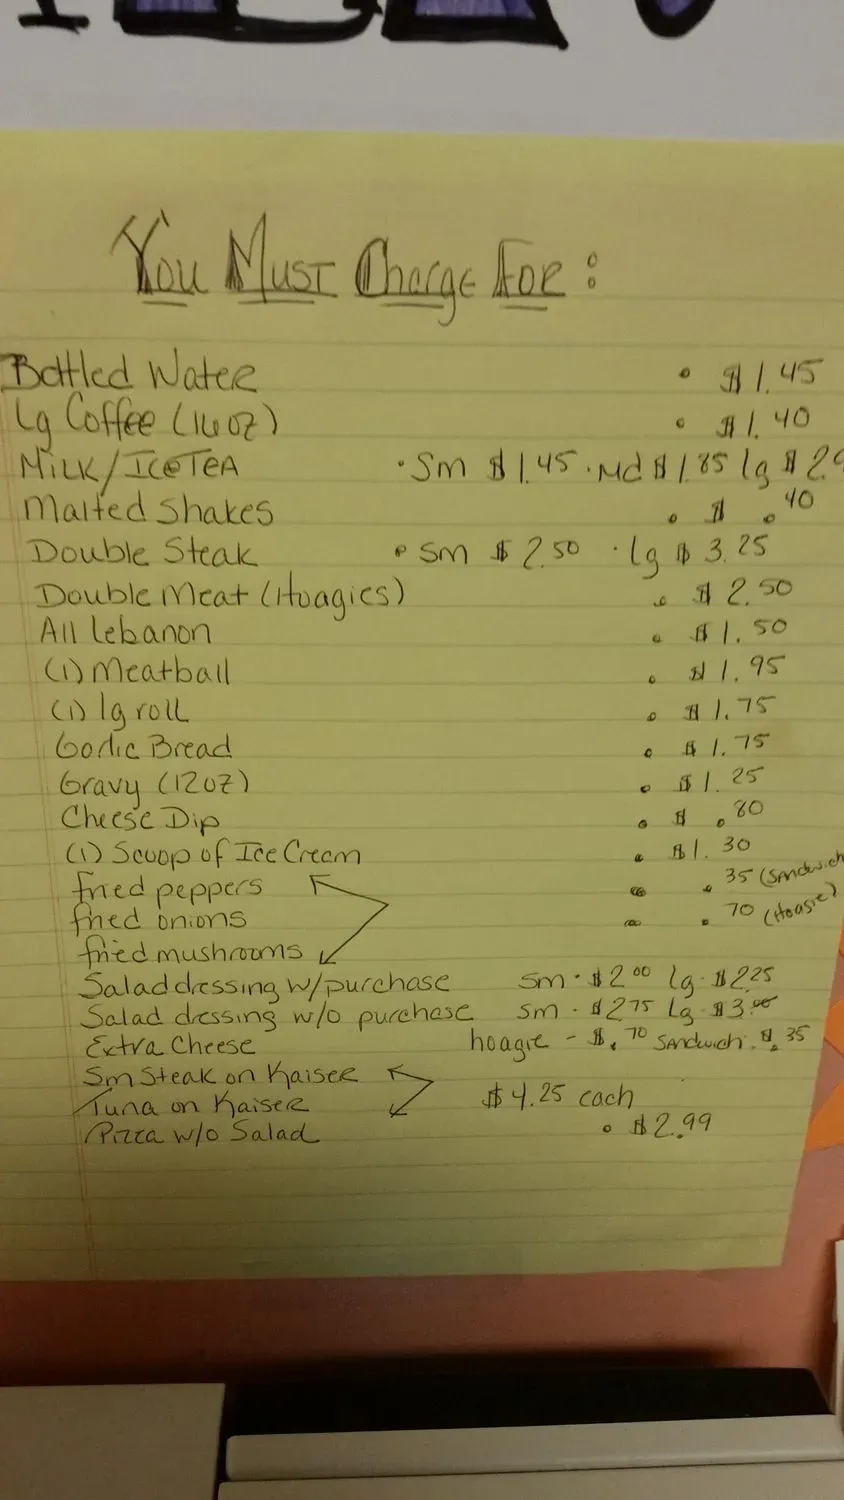 You Must Charge For:
Bottled Water • $1.45
Lg Coffee (16oz) • $1.40
Milk/Ice Tea • Sm $1.45 • Md $1.85 lg $2.
Malted Shakes • $ .40
Double Steak • Sm $2.50 • lg $3.25
Double Meat (Hoagies) • $2.50
All lebanon • $1.50
(1) Meatball • $1.95
(1) lg roll • $1.75
Garlic Bread • $1.75
Gravy (12oz) • $1.25
Cheese Dip • $ .80
(1) Scoop of Ice Cream • $1.30
fried peppers .35 (Sandwich
fried onions .70 (Hoagie)
fried mushrooms
Salad dressing w/purchase Sm • $2.00 lg • $2.25
Salad dressing w/o purchase Sm • $2.75 Lg • $3.00
Extra Cheese hoagie - $.70 Sandwich • $.35
Sm Steak on Kaiser
Tuna on Kaiser $4.25 each
Pizza w/o Salad • $2.99